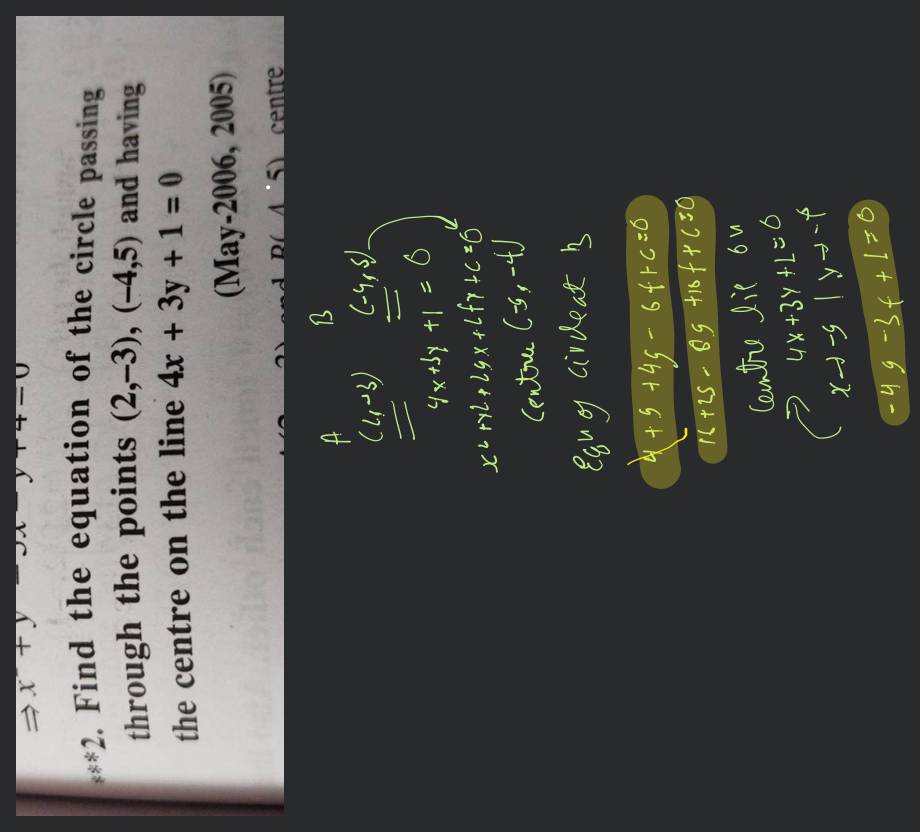 ***2. Find the equation of the circle passing
through the points (2,–3), (–4,5) and having
the centre on the line 4x + 3y + 1 = 0
(May-2006, 2005)
A B
(2,-3) (-4,5)
4x+3y+1 = 0
x²+y²+2gx+2fy+c=0
Centre (-g, -f)
Eqn of circle at B
4+9+4g-6f+c=0
16+25-8g+10f+c=0
Centre lie on
4x+3y+1=0
x→-g | y→-f
-4g-3f+1=0